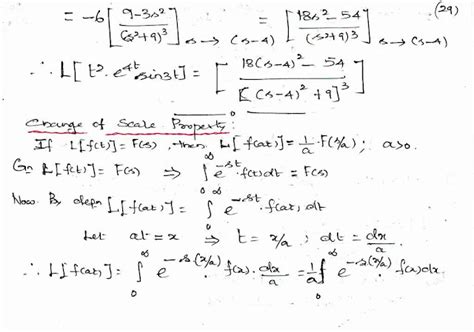 (29)
= -6 [ (9-3s²) / (s²+9)³ ] s → (s-4) = [ (18s² - 54) / (s²+9)³ ] s → (s-4)
∴ L[ t² . e^{4t} sin3t ] = [ (18(s-4)² - 54) / [ (s-4)² + 9 ]³ ]
Change of Scale Property:
If L[f(t)] = F(s), then L[f(at)] = 1/a . F(s/a) ; a>0.
Gn L[f(t)] = F(s) ⇒ ∫_0^∞ e^{-st} . f(t) dt = F(s)
Now. By defn L[f(at)] = ∫_0^∞ e^{-st} . f(at) dt
Let at = x ⇒ t = x/a ; dt = dx/a.
∴ L[f(at)] = ∫_0^∞ e^{-s(x/a)} . f(x) . dx/a = 1/a ∫_0^∞ e^{-s(x/a)} . f(x) dx.